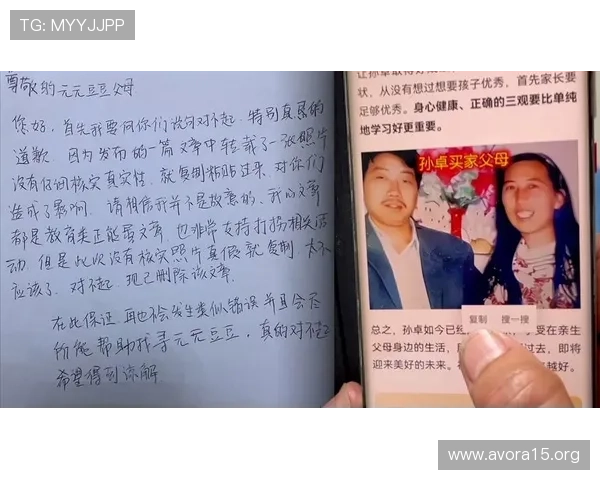 TG: MYYJJPP
尊敬的元元豆豆父母
您好,首先我要向你们说句对不起,特别真恳的
道歉,因为发布的一篇文章中转载了一张照片
没有仔细核实真实性,就复制粘贴过来,对你们
造成了影响,请相信我并不是故意的,我的文章
都是教育类正能量文章,也非常支持打拐相关活
动,但是此次没有核实照片真假就复制,太不
应该了,对不起,现已删除该文章.
在此保证,再也不会发生类似错误并且会尽
所能帮助找寻元元豆豆,真的对不起
希望得到谅解
让孙卓取得好成
状,从没有想过想要孩子优秀,首先家长要
足够优秀。身心健康、正确的三观要比单纯
地学习好更重要。
孙卓买家父母
复制 搜一搜
总之,孙卓如今已经
受在亲生
父母身边的生活,
过去,即将
迎来美好的未来。
越好。
www.avora15.org